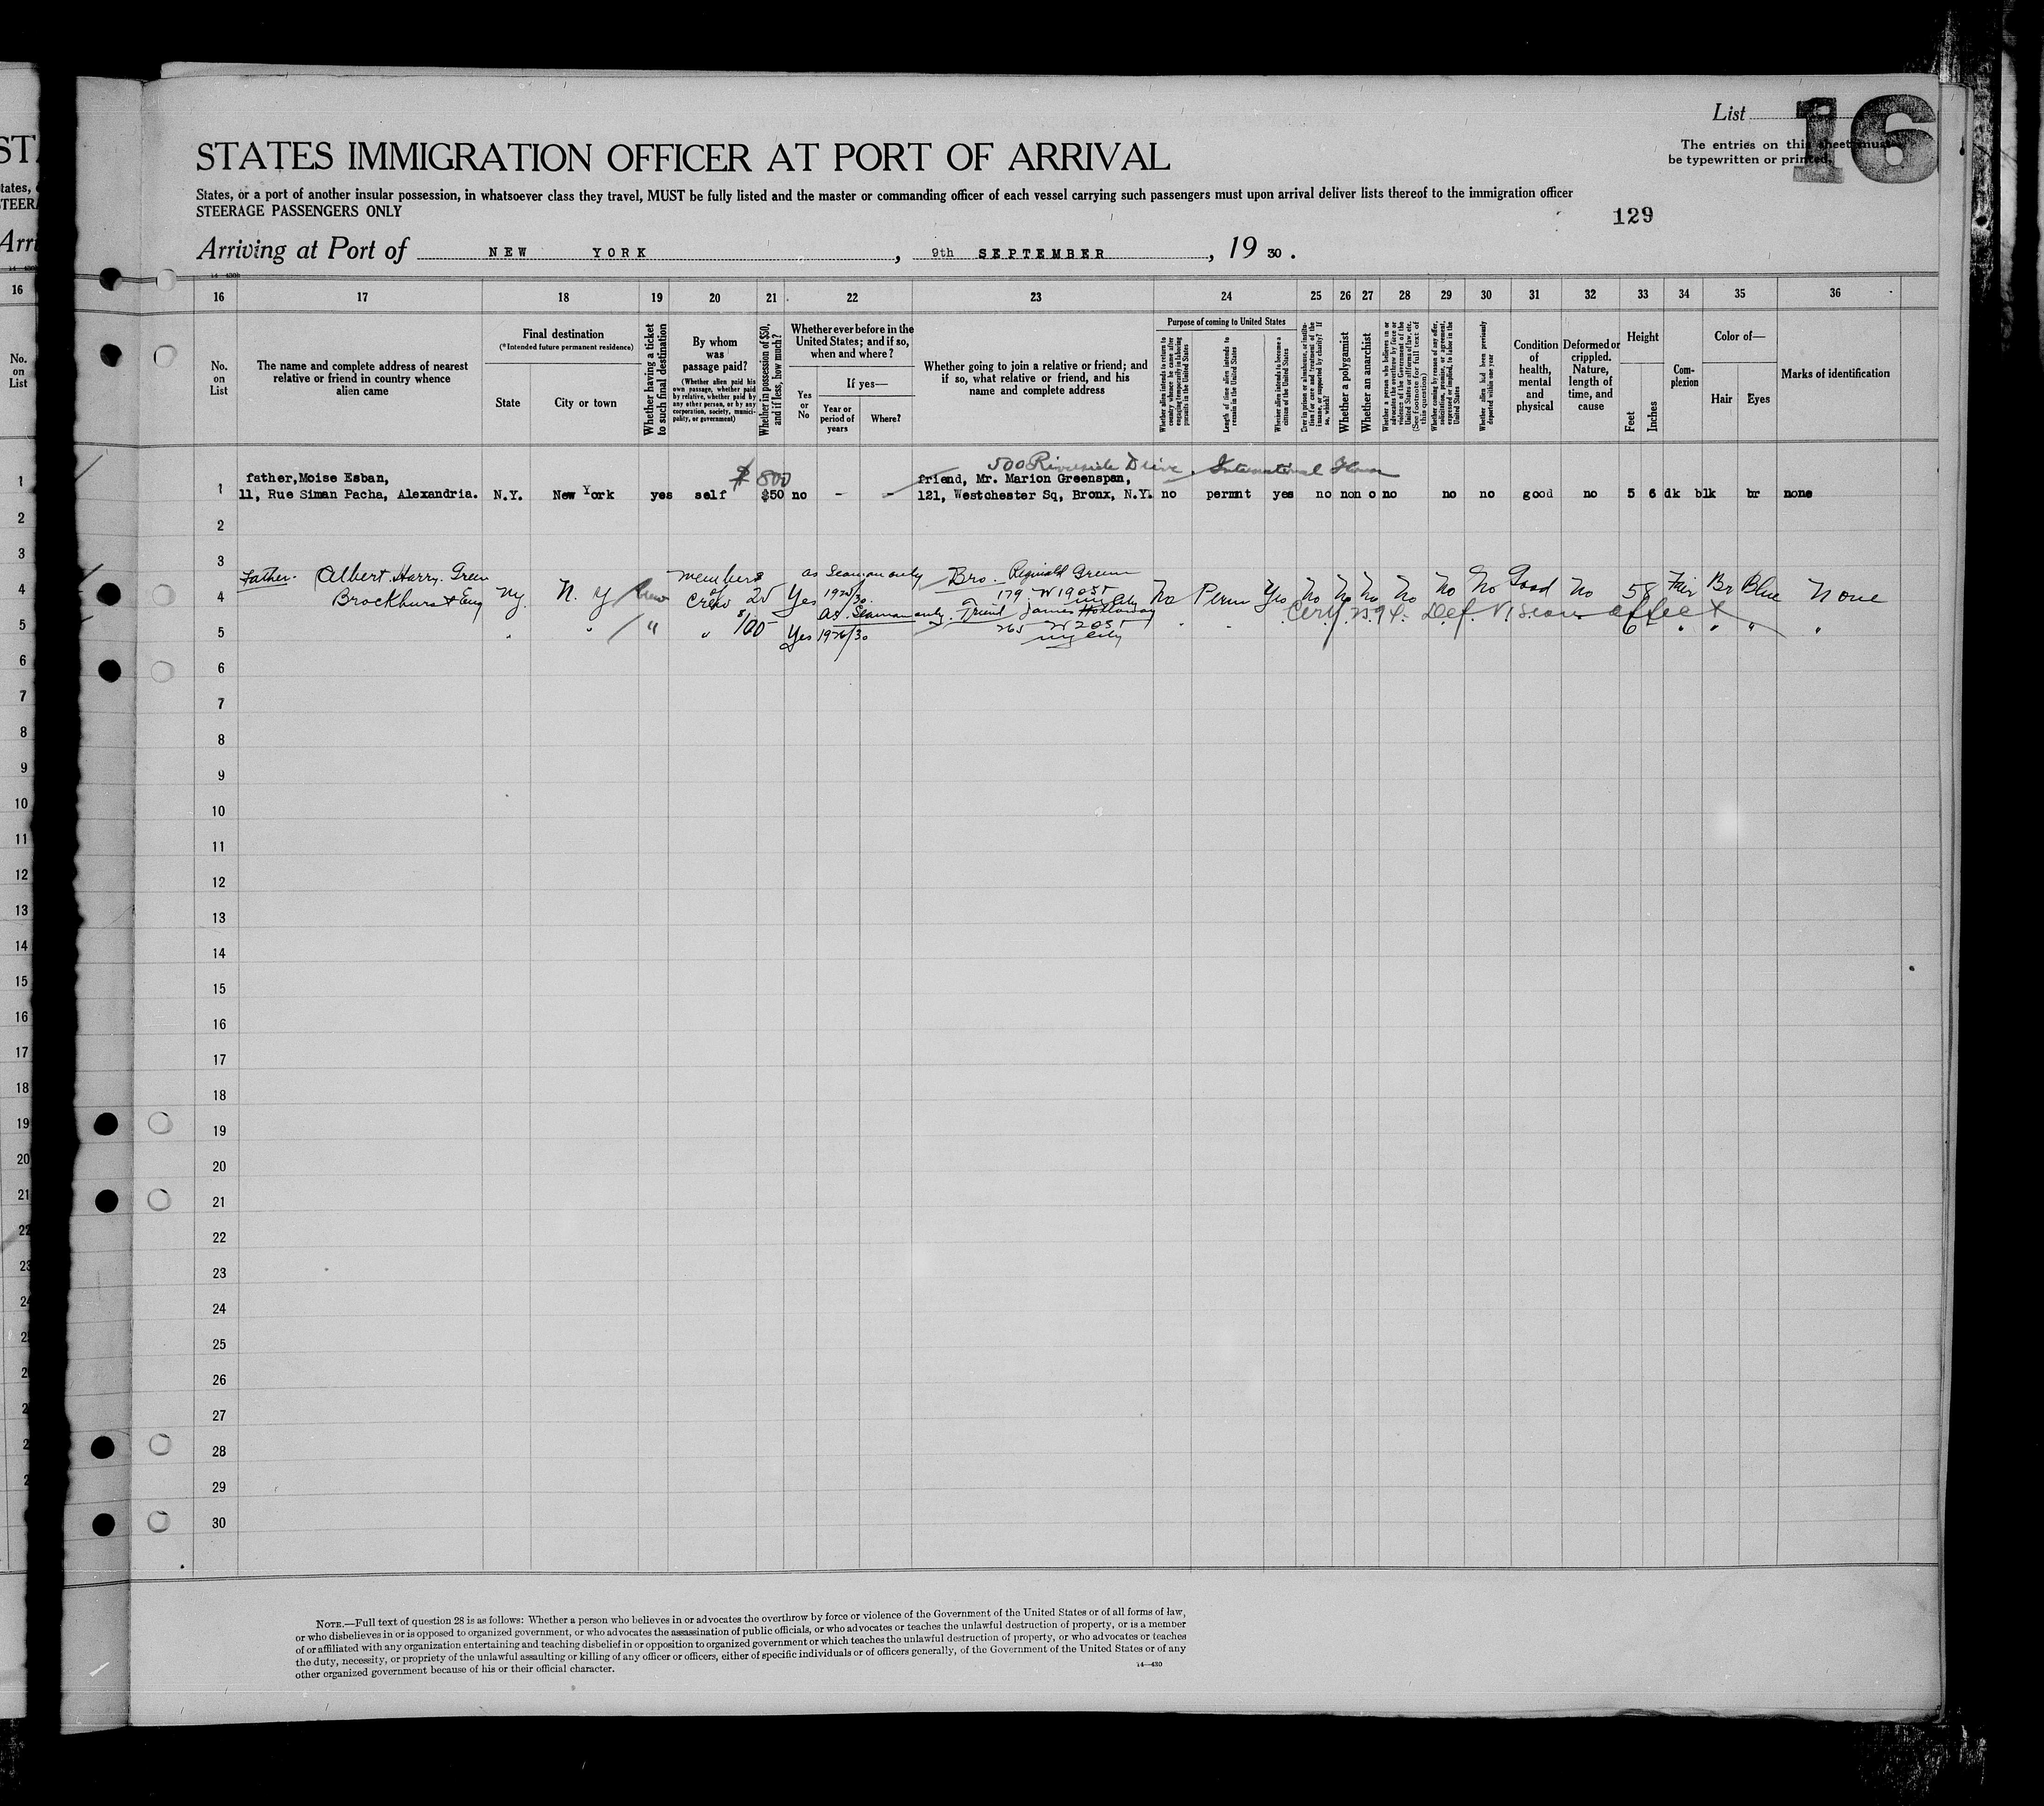 List
16
The entries on this sheet must
be typewritten or printed.
STATES IMMIGRATION OFFICER AT PORT OF ARRIVAL
States, or a port of another insular possession, in whatsoever class they travel, MUST be fully listed and the master or commanding officer of each vessel carrying such passengers must upon arrival deliver lists thereof to the immigration officer
STEERAGE PASSENGERS ONLY
129
Arriving at Port of NEW YORK, 9th SEPTEMBER, 19 30.
16 17 18 19 20 21 22 23 24 25 26 27 28 29 30 31 32 33 34 35 36
No. on List
The name and complete address of nearest relative or friend in country whence alien came
Final destination
(*Intended future permanent residence)
State
City or town
Whether having a ticket to such final destination
By whom was passage paid?
(Whether alien paid his own passage, whether paid by relative, whether paid by any other person, or by any corporation, society, municipality, or government)
Whether in possession of $50, and if less, how much?
Whether ever before in the United States; and if so, when and where?
Yes or No
If yes—
Year or period of years
Where?
Whether going to join a relative or friend; and if so, what relative or friend, and his name and complete address
Purpose of coming to United States
Whether alien intends to return to country whence he came after engaging temporarily in laboring pursuits in the United States
Length of time alien intends to remain in the United States
Whether alien intends to become a citizen of the United States
Ever in prison or almshouse, or institution for care and treatment of the insane, or supported by charity? If so, which?
Whether a polygamist
Whether an anarchist
Whether a person who believes in or advocates the overthrow by force or violence of the Government of the United States or all forms of law, etc. (See footnote for full text of this question)
Whether coming by reason of any offer, solicitation, promise, or agreement, expressed or implied, to labor in the United States
Whether alien had been previously deported within one year
Condition of health, mental and physical
Deformed or crippled. Nature, length of time, and cause
Height
Feet
Inches
Com-plexion
Color of—
Hair
Eyes
Marks of identification
500 Riverside Drive, International House
$ 800
father, Moise Esban,
friend, Mr. Marion Greenspan,
1 11, Rue Siman Pacha, Alexandria. N.Y. New York yes self $50 no - - 121, Westchester Sq, Bronx, N.Y. no permnt yes no non o no no no good no 5 6 dk blk br none
2
3
Father. Albert Harry Green
members of crew
as Seaman only
Bro. Reginald Green
4 Brockhurst Eng N.Y. N.Y. 25 Yes 1925/30 179 W 190 ST ny City No Perm Yes No No No No No No Good No 5 8 Fair Br Blue None
as Seaman only. Friend James Holloway
Cert. Def. Vision affect
5 " " " " $100 Yes 1926/30 265 W 20 ST ny City " " " 6 " " " "
6
7
8
9
10
11
12
13
14
15
16
17
18
19
20
21
22
23
24
25
26
27
28
29
30
NOTE.—Full text of question 28 is as follows: Whether a person who believes in or advocates the overthrow by force or violence of the Government of the United States or of all forms of law,
or who disbelieves in or is opposed to organized government, or who advocates the assassination of public officials, or who advocates or teaches the unlawful destruction of property, or is a member
of or affiliated with any organization entertaining and teaching disbelief in or opposition to organized government or which teaches the unlawful destruction of property, or who advocates or teaches
the duty, necessity, or propriety of the unlawful assaulting or killing of any officer or officers, either of specific individuals or of officers generally, of the Government of the United States or of any
other organized government because of his or their official character.
14—430